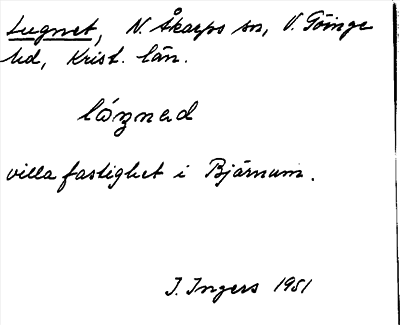 Lugnet, N. Åkarps sn, V. Göinge
hd, Krist. län.
lógnad
villa fastighet i Bjärnum.
I. Ingers 1951